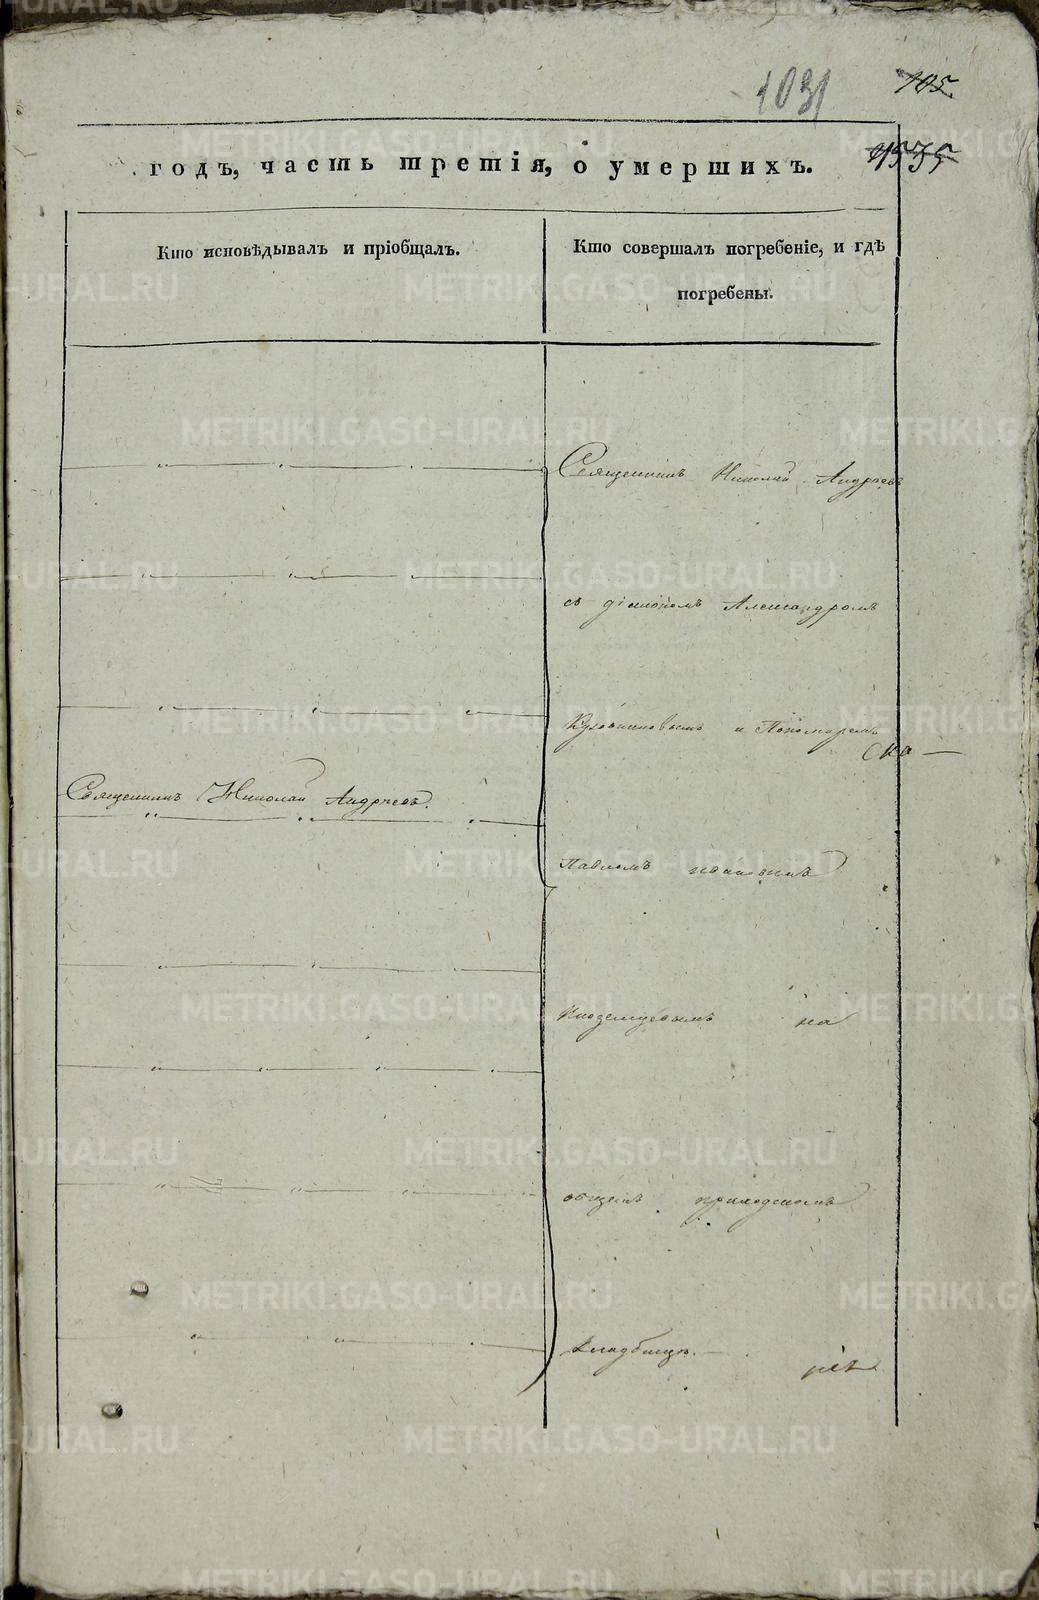 1031
105
1535
годъ, часть третія, о умершихъ.
Кто исповѣдывалъ и пріобщалъ.
Кто совершалъ погребеніе, и гдѣ
погребены.
Священникъ Николай Андреевъ
съ діакономъ Александромъ
и Пономаремъ
Священникъ Николай Андреевъ.
Павломъ
Иноземцевымъ на
общемъ приходскомъ
кладбищѣ.
METRIKI.GASO-URAL.RU